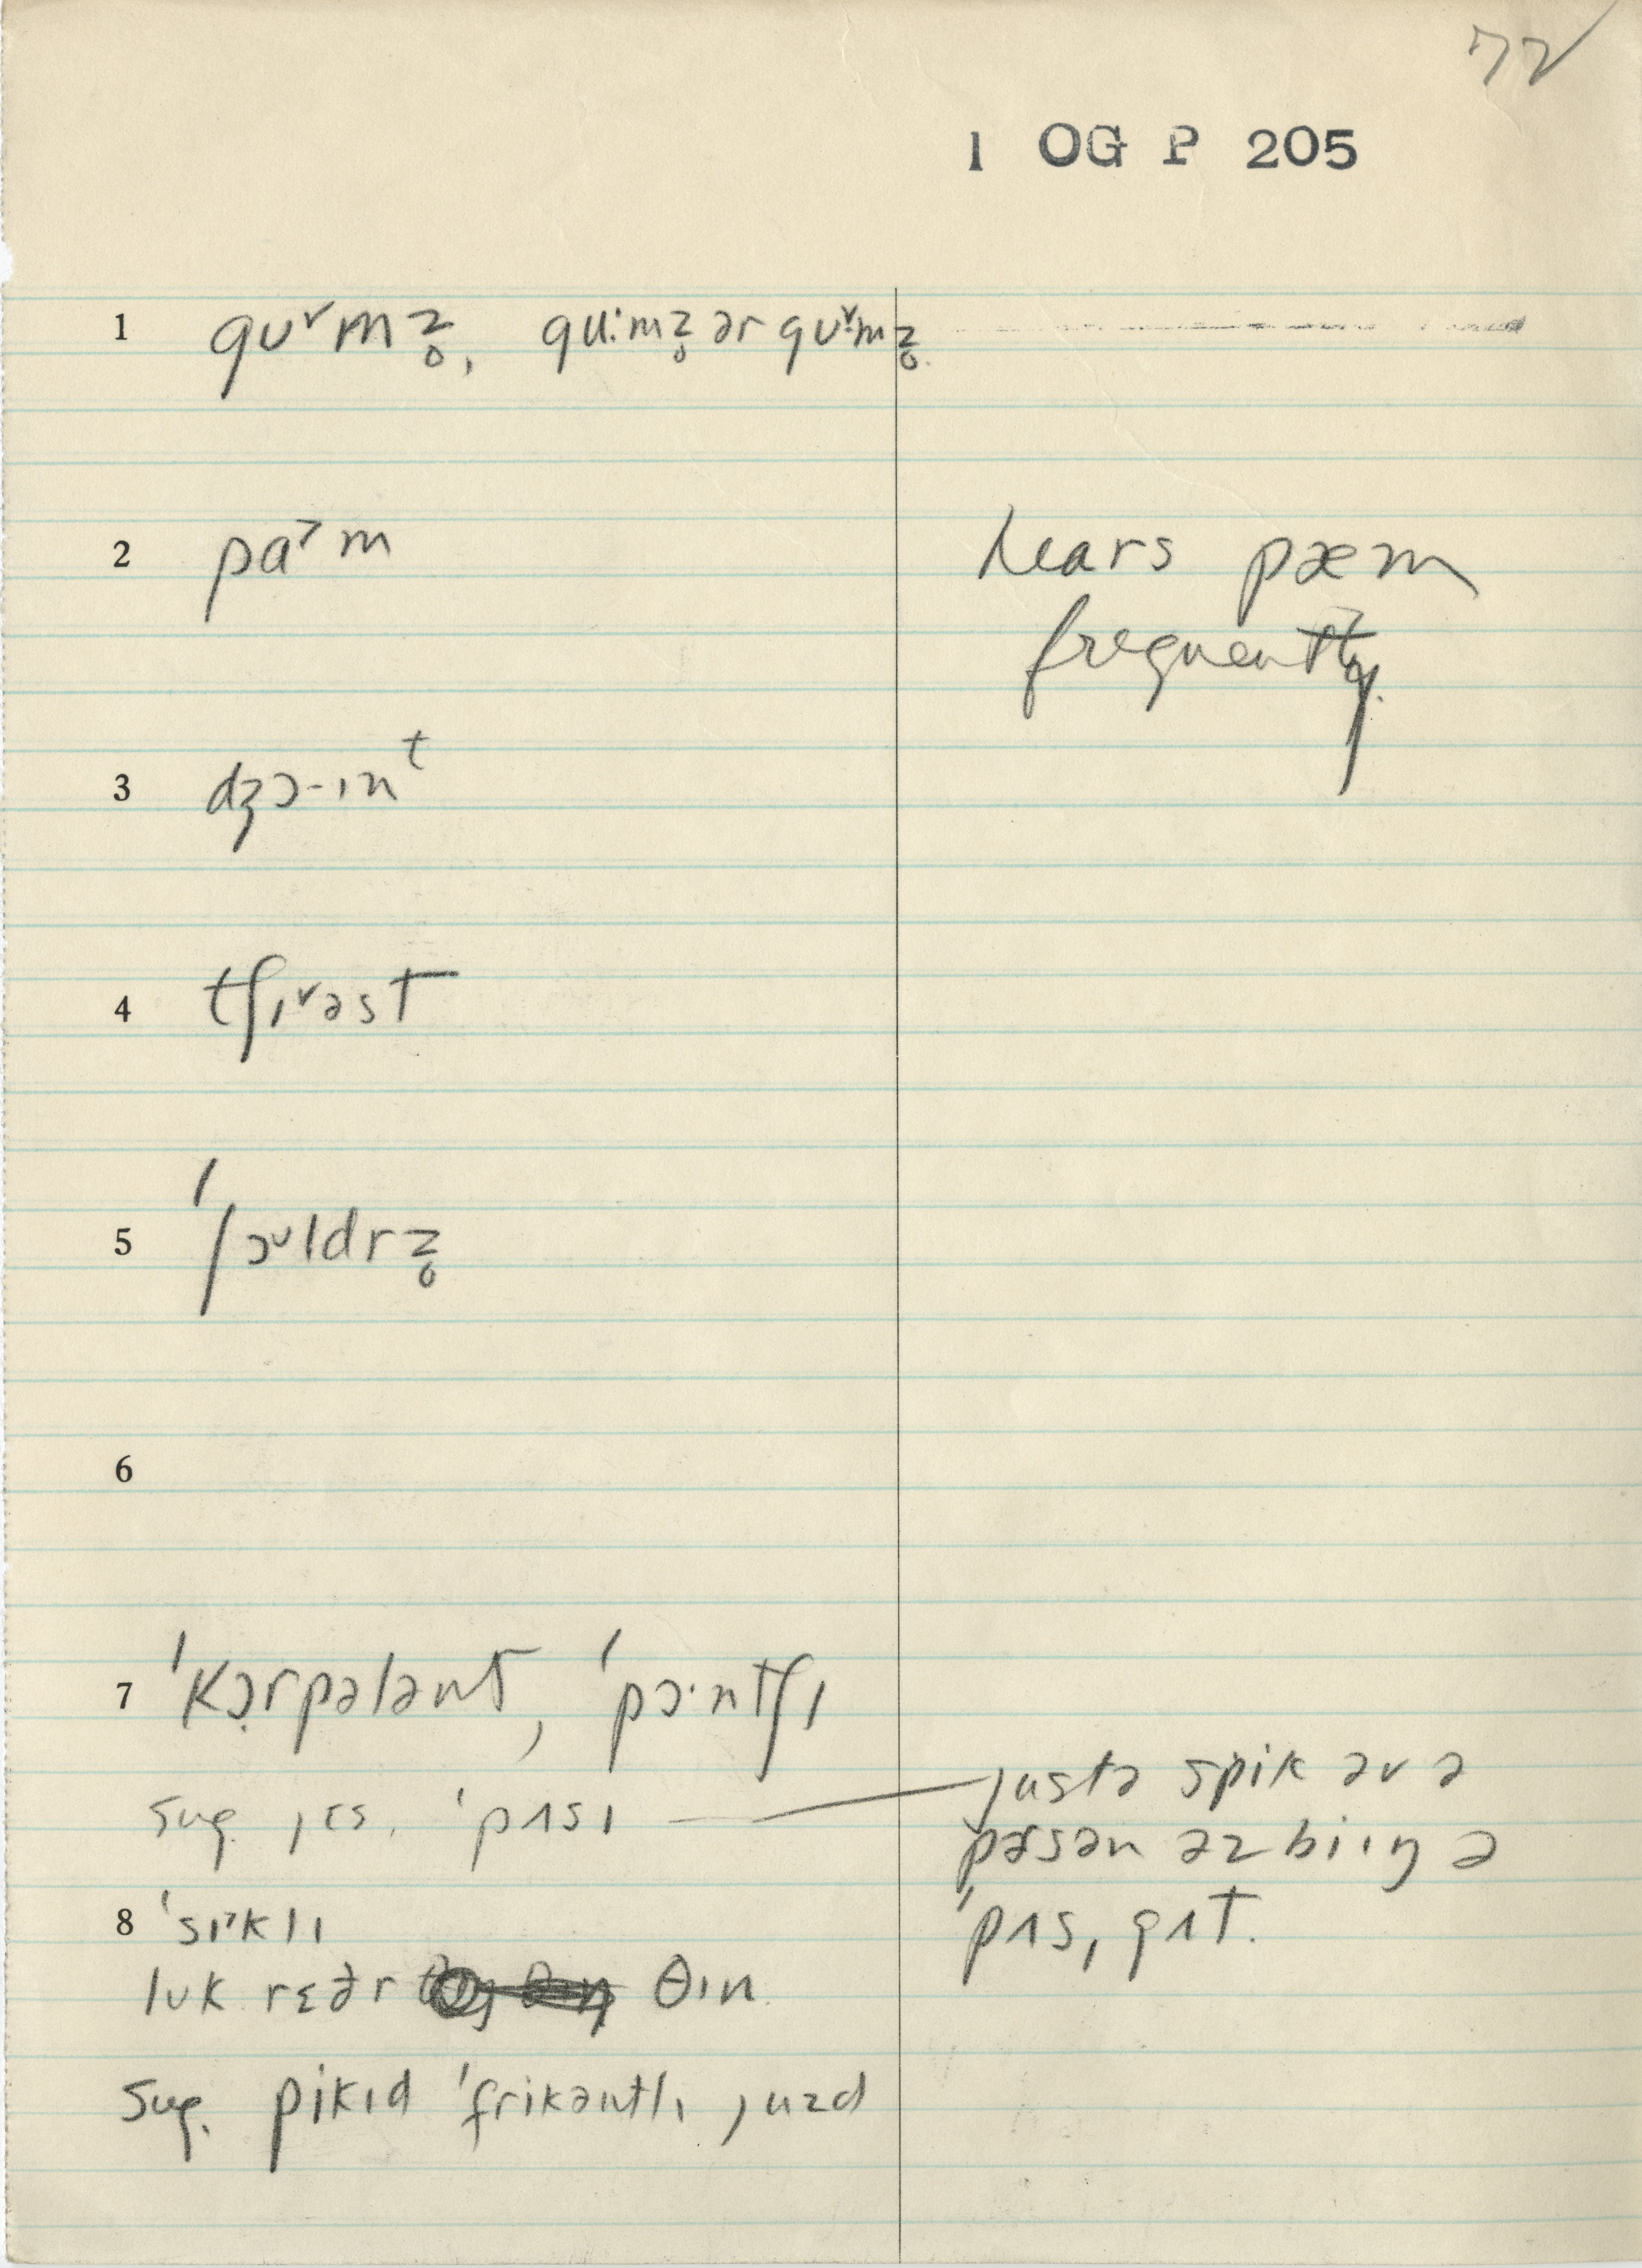 72
1 OG P 205
1 gᴜ˅mz̥, gu:mz̥ ər gᴜ˅mz̥.
2 pɑ˃m
hears pæm
frequently.
3 dʒɔ-ɪnᵗ
4 tʃɪ˅əst
5 ˈʃɔᶷldrz̥
6
7 ˈkɔ̣rpələnt, ˈpɔ·ntʃɪ
sug. jɛs. ˈpʌsɪ — justə spik əv ə
pɜsən əz biɪŋ ə
8 ˈsɪ˃klɪ
ˈpʌs, gʌt.
lᴜk rɛðr θɪn.
sug. pikɪd ˈfrikəntlɪ juzd